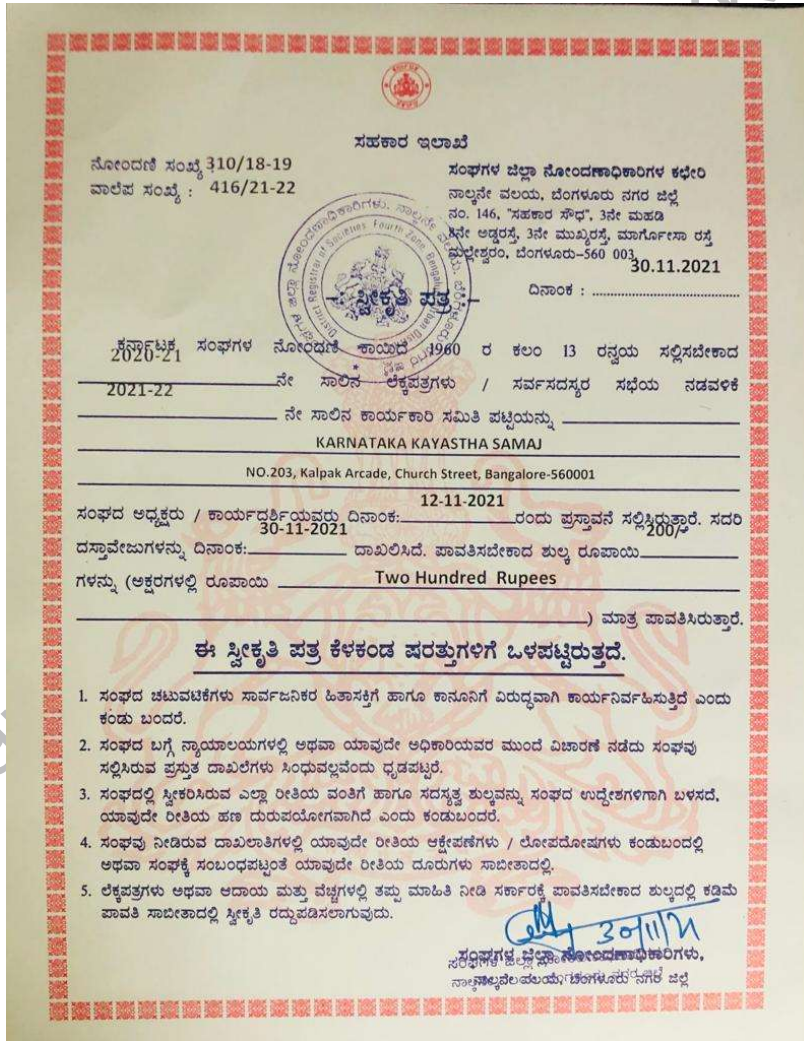 ಸಹಕಾರ ಇಲಾಖೆ
ನೋಂದಣಿ ಸಂಖ್ಯೆ 310/18-19
ವಾಲೆಪ ಸಂಖ್ಯೆ : 416/21-22
ಸಂಘಗಳ ಜಿಲ್ಲಾ ನೋಂದಣಾಧಿಕಾರಿಗಳ ಕಛೇರಿ
ನಾಲ್ಕನೇ ವಲಯ, ಬೆಂಗಳೂರು ನಗರ ಜಿಲ್ಲೆ
ನಂ. 146, "ಸಹಕಾರ ಸೌಧ", 3ನೇ ಮಹಡಿ
8ನೇ ಅಡ್ಡರಸ್ತೆ, 3ನೇ ಮುಖ್ಯರಸ್ತೆ, ಮಾರ್ಗೋಸಾ ರಸ್ತೆ
ಮಲ್ಲೇಶ್ವರಂ, ಬೆಂಗಳೂರು-560 003
30.11.2021
ದಿನಾಂಕ :
District Registrar of Societies, Fourth Zone, Bengaluru Urban Dist
- ಸ್ವೀಕೃತಿ ಪತ್ರ -
ಕರ್ನಾಟಕ ಸಂಘಗಳ ನೋಂದಣಿ ಕಾಯಿದೆ 1960 ರ ಕಲಂ 13 ರನ್ವಯ ಸಲ್ಲಿಸಬೇಕಾದ
2020-21
ನೇ ಸಾಲಿನ ಲೆಕ್ಕಪತ್ರಗಳು / ಸರ್ವಸದಸ್ಯರ ಸಭೆಯ ನಡವಳಿಕೆ
2021-22
ನೇ ಸಾಲಿನ ಕಾರ್ಯಕಾರಿ ಸಮಿತಿ ಪಟ್ಟಿಯನ್ನು
KARNATAKA KAYASTHA SAMAJ
NO.203, Kalpak Arcade, Church Street, Bangalore-560001
12-11-2021
ಸಂಘದ ಅಧ್ಯಕ್ಷರು / ಕಾರ್ಯದರ್ಶಿಯವರು ದಿನಾಂಕ: ರಂದು ಪ್ರಸ್ತಾವನೆ ಸಲ್ಲಿಸಿರುತ್ತಾರೆ. ಸದರಿ
30-11-2021 200/-
ದಸ್ತಾವೇಜುಗಳನ್ನು ದಿನಾಂಕ: ದಾಖಲಿಸಿದೆ. ಪಾವತಿಸಬೇಕಾದ ಶುಲ್ಕ ರೂಪಾಯಿ
ಗಳನ್ನು (ಅಕ್ಷರಗಳಲ್ಲಿ ರೂಪಾಯಿ Two Hundred Rupees
) ಮಾತ್ರ ಪಾವತಿಸಿರುತ್ತಾರೆ.
ಈ ಸ್ವೀಕೃತಿ ಪತ್ರ ಕೆಳಕಂಡ ಷರತ್ತುಗಳಿಗೆ ಒಳಪಟ್ಟಿರುತ್ತದೆ.
1. ಸಂಘದ ಚಟುವಟಿಕೆಗಳು ಸಾರ್ವಜನಿಕರ ಹಿತಾಸಕ್ತಿಗೆ ಹಾಗೂ ಕಾನೂನಿಗೆ ವಿರುದ್ಧವಾಗಿ ಕಾರ್ಯನಿರ್ವಹಿಸುತ್ತಿದೆ ಎಂದು
ಕಂಡು ಬಂದರೆ.
2. ಸಂಘದ ಬಗ್ಗೆ ನ್ಯಾಯಾಲಯಗಳಲ್ಲಿ ಅಥವಾ ಯಾವುದೇ ಅಧಿಕಾರಿಯವರ ಮುಂದೆ ವಿಚಾರಣೆ ನಡೆದು ಸಂಘವು
ಸಲ್ಲಿಸಿರುವ ಪ್ರಸ್ತುತ ದಾಖಲೆಗಳು ಸಿಂಧುವಲ್ಲವೆಂದು ಧೃಡಪಟ್ಟರೆ.
3. ಸಂಘದಲ್ಲಿ ಸ್ವೀಕರಿಸಿರುವ ಎಲ್ಲಾ ರೀತಿಯ ವಂತಿಗೆ ಹಾಗೂ ಸದಸ್ಯತ್ವ ಶುಲ್ಕವನ್ನು ಸಂಘದ ಉದ್ದೇಶಗಳಿಗಾಗಿ ಬಳಸದೆ,
ಯಾವುದೇ ರೀತಿಯ ಹಣ ದುರುಪಯೋಗವಾಗಿದೆ ಎಂದು ಕಂಡುಬಂದರೆ.
4. ಸಂಘವು ನೀಡಿರುವ ದಾಖಲಾತಿಗಳಲ್ಲಿ ಯಾವುದೇ ರೀತಿಯ ಆಕ್ಷೇಪಣೆಗಳು / ಲೋಪದೋಷಗಳು ಕಂಡುಬಂದಲ್ಲಿ
ಅಥವಾ ಸಂಘಕ್ಕೆ ಸಂಬಂಧಪಟ್ಟಂತೆ ಯಾವುದೇ ರೀತಿಯ ದೂರುಗಳು ಸಾಬೀತಾದಲ್ಲಿ.
5. ಲೆಕ್ಕಪತ್ರಗಳು ಅಥವಾ ಆದಾಯ ಮತ್ತು ವೆಚ್ಚಗಳಲ್ಲಿ ತಪ್ಪು ಮಾಹಿತಿ ನೀಡಿ ಸರ್ಕಾರಕ್ಕೆ ಪಾವತಿಸಬೇಕಾದ ಶುಲ್ಕದಲ್ಲಿ ಕಡಿಮೆ
ಪಾವತಿ ಸಾಬೀತಾದಲ್ಲಿ ಸ್ವೀಕೃತಿ ರದ್ದುಪಡಿಸಲಾಗುವುದು.
30/11/21
ಸಂಘಗಳ ಜಿಲ್ಲಾ ನೋಂದಣಾಧಿಕಾರಿಗಳು,
ನಾಲ್ಕನೇ ವಲಯ, ಬೆಂಗಳೂರು ನಗರ ಜಿಲ್ಲೆ